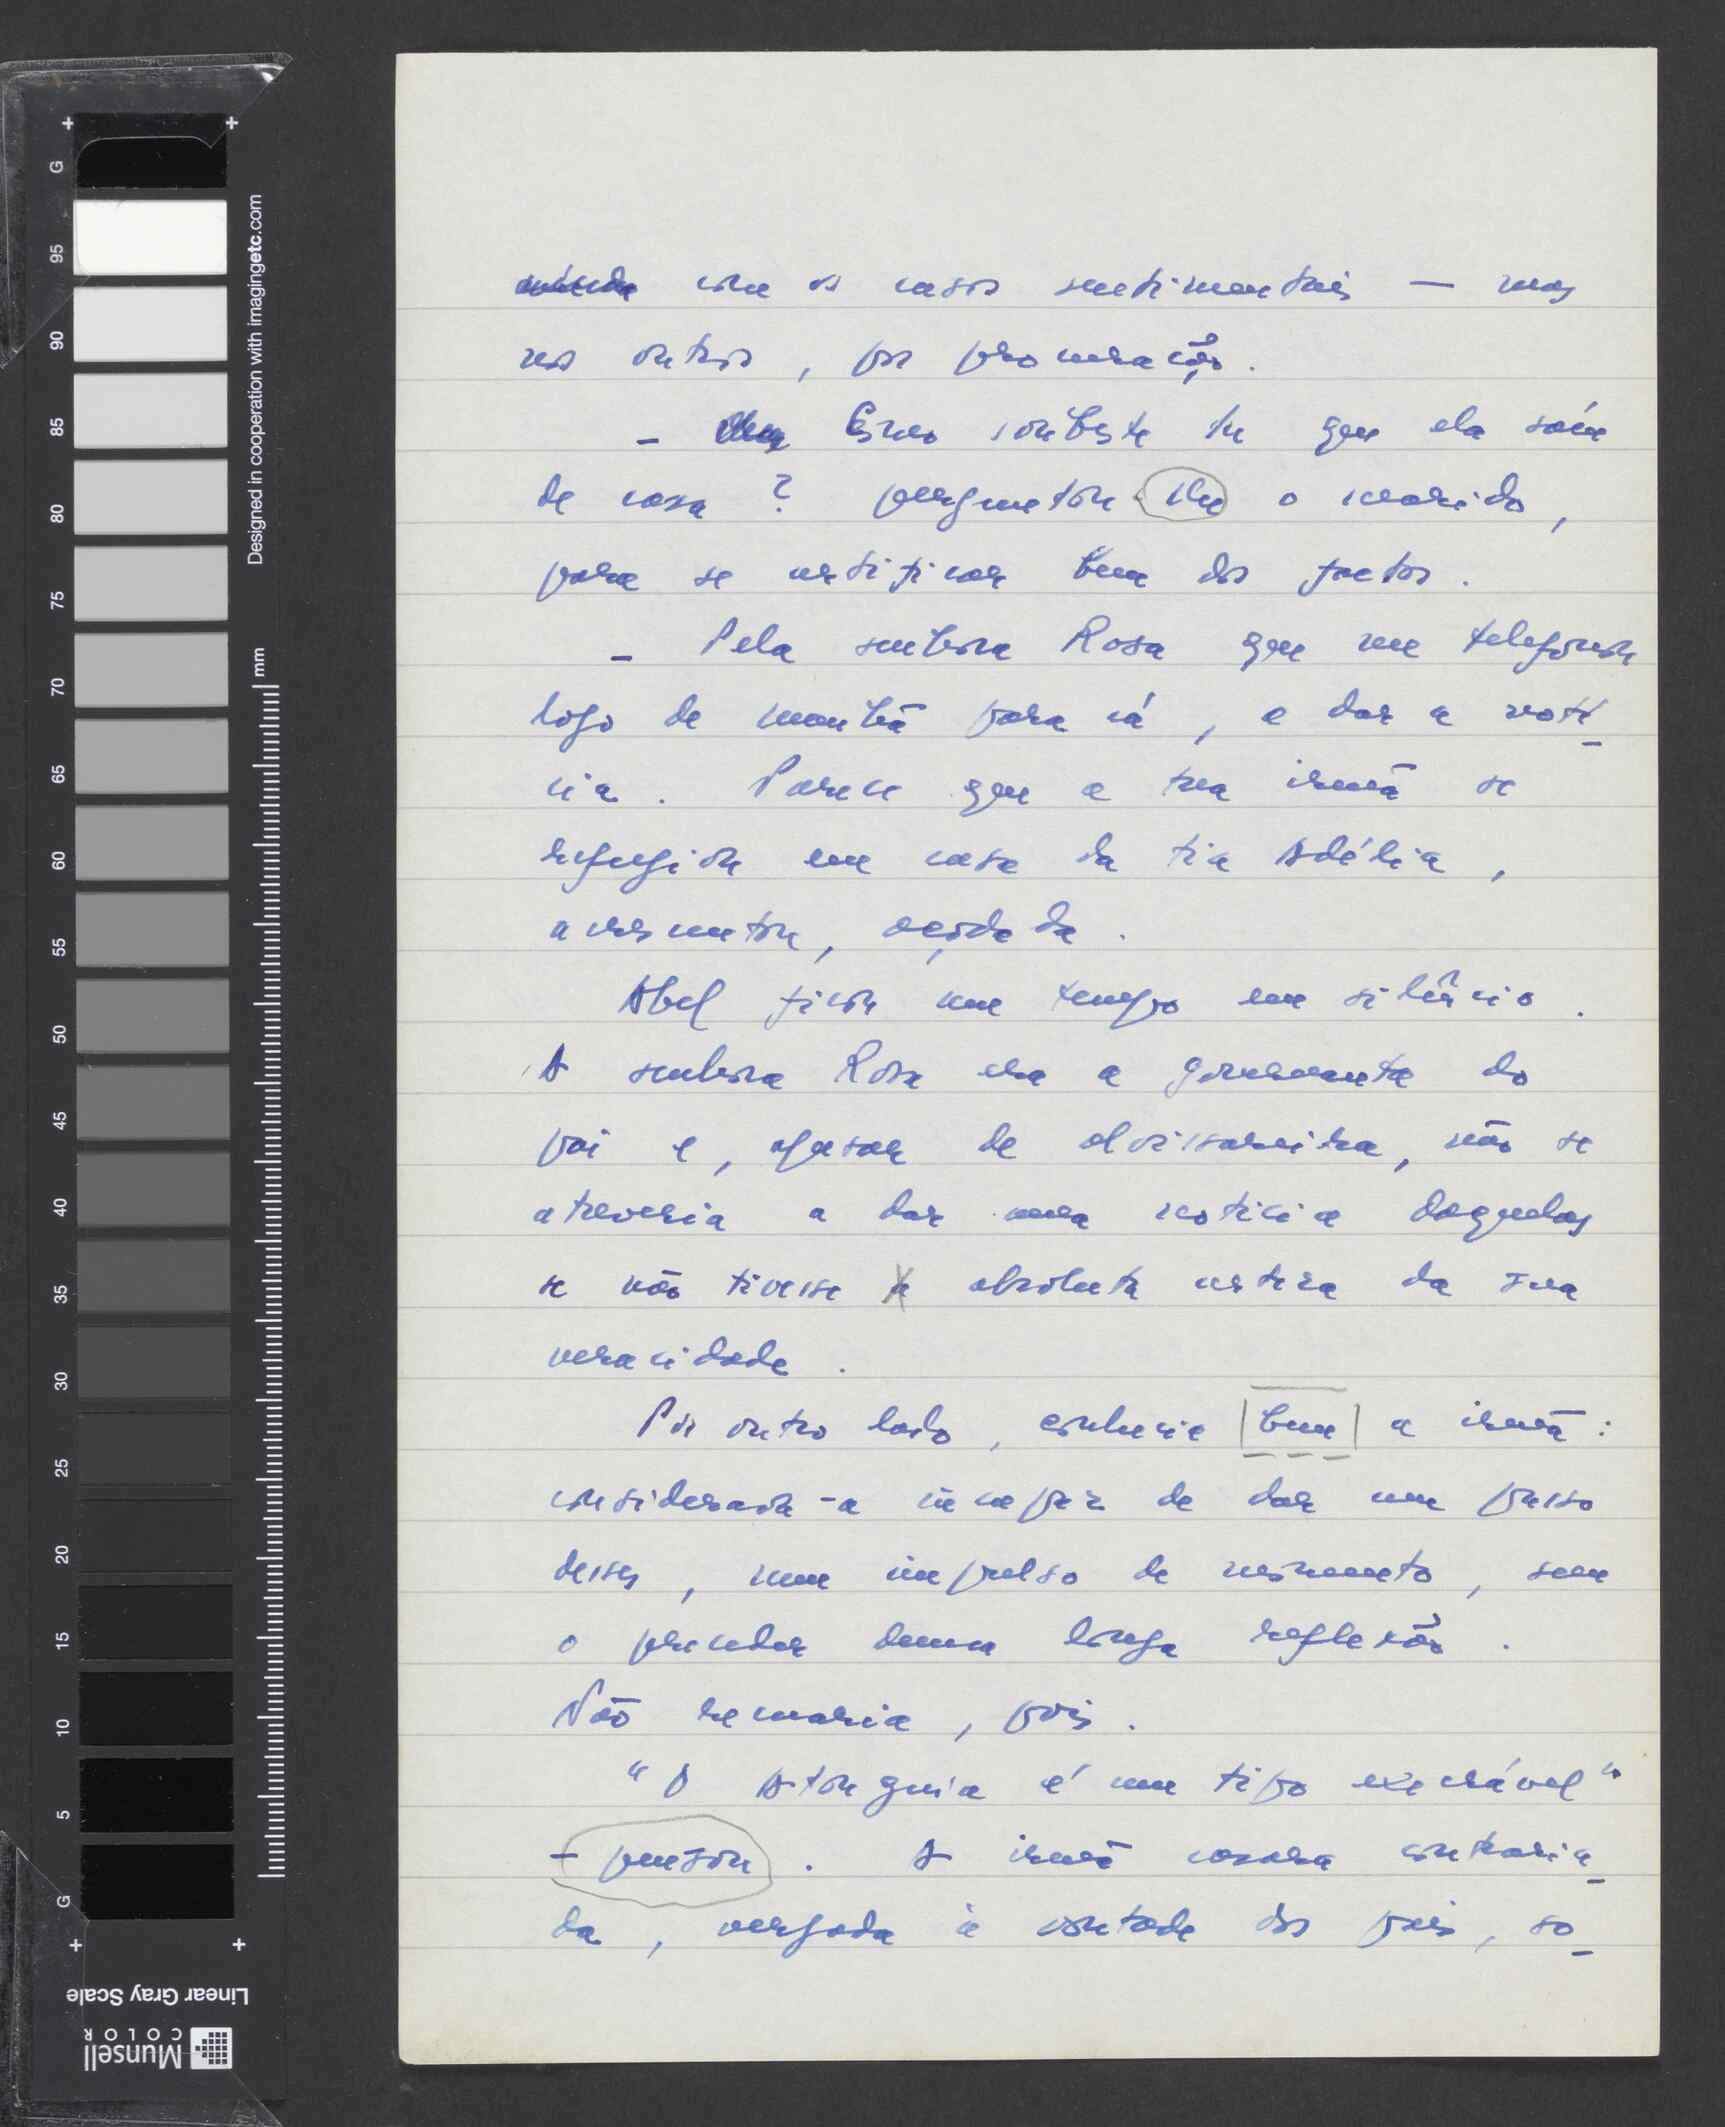 com os casos sentimentais — mas
nos outros, por procuração.
— Como soubeste tu que ela saíu
de casa? perguntou lhe o marido,
para se certificar bem dos factos.
— Pela senhora Rosa que me telefonou
logo de manhã para cá, a dar a notí-
cia. Parece que a tua irmã se
refugiou em casa da tia Adélia,
acrescentou, açodada.
Abel ficou um tempo em silêncio.
A senhora Rosa era a governanta do
pai e, apesar de alvissareira, não se
atreveria a dar uma noticia daquelas
se não tivesse a absoluta certeza da sua
veracidade.
Por outro lado, conhecia bem a irmã:
considerava-a incapaz de dar um passo
desses, num impulso de momento, sem
o preceder duma longa reflexão.
Não remaria, pois.
"O Atouguia é um tipo execrável"
— pensou. A irmã casara contraria-
da, vergada à vontade dos pais, so-
G
95
90
85
80
75
70
65
60
55
50
45
40
35
30
25
20
15
10
5
G
Designed in cooperation with imagingetc.com
mm
Linear Gray Scale
Munsell
COLOR